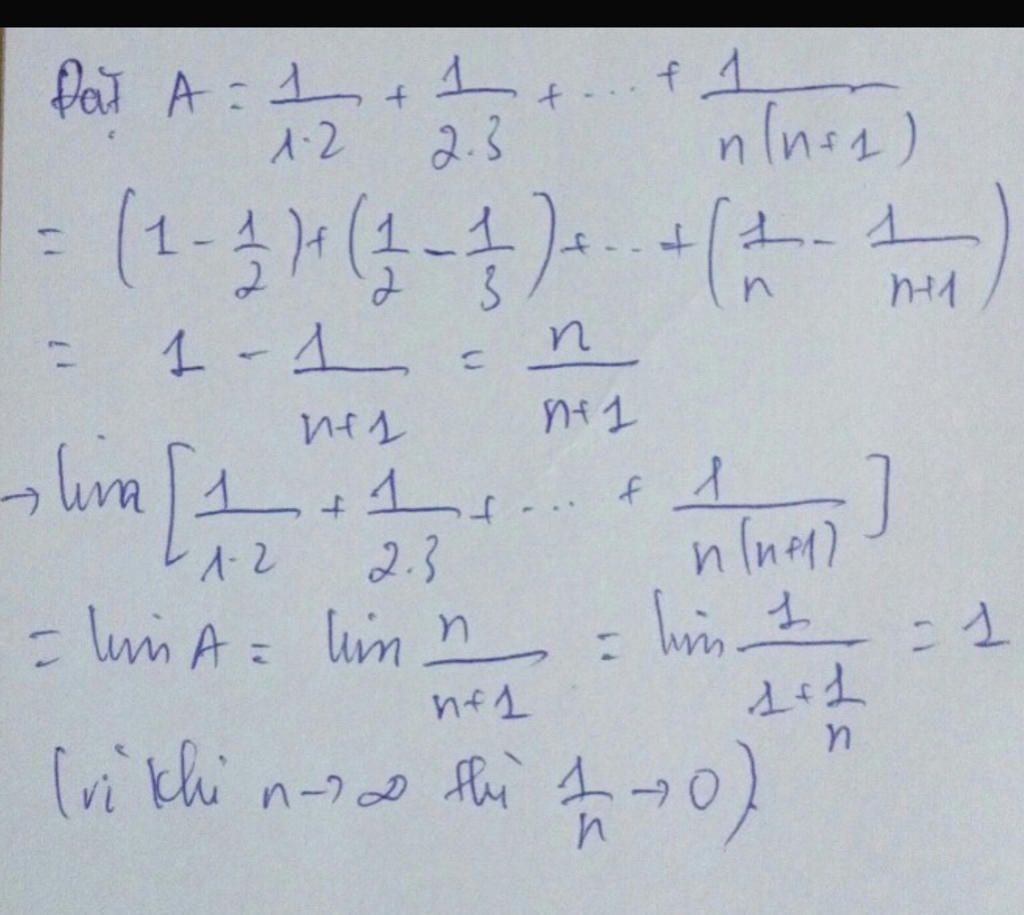 Đặt A = 1/(1·2) + 1/(2.3) + ... + 1/(n(n+1))
= (1 - 1/2) + (1/2 - 1/3) + ... + (1/n - 1/(n+1))
= 1 - 1/(n+1) = n/(n+1)
→ lim [1/(1·2) + 1/(2.3) + ... + 1/(n(n+1))]
= lim A = lim n/(n+1) = lim 1/(1+1/n) = 1
(vì khi n → ∞ thì 1/n → 0)